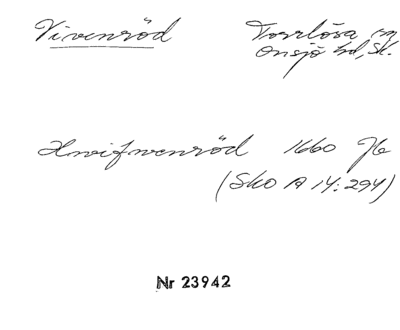 Vivenröd Torrlösa sn
Onsjö hd, Sk.
Hwifwenröd 1660 Jb
(Sko A 14:294)
Nr 23942